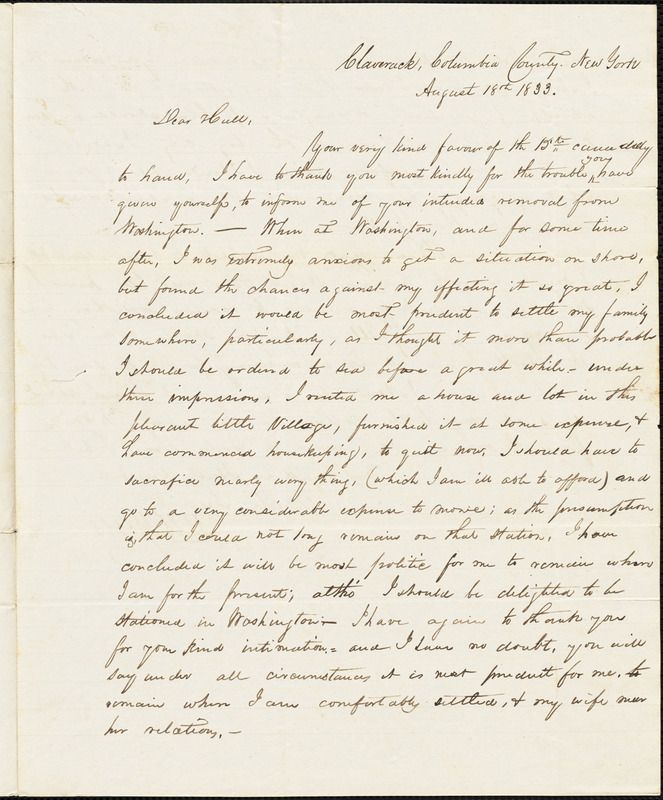 Claverack, Columbia County. New York
August 18th 1833.
Dear Hull,
Your very kind favour of the 13th came duly
to hand, I have to thank you most kindly for the trouble, you have
given yourself, to inform me of your intended removal from
Washington. — When at Washington, and for some time
after, I was extremely anxious to get a situation on shore,
but found the chances against my effecting it so great, I
concluded it would be most prudent to settle my family
somewhere, particularly, as I thought it more than probable
I should be ordered to sea before a great while – under
these impressions, I rented me a house and lot in this
pleasant little Village, furnished it at some expense, &
have commenced housekeeping, to quit now, I should have to
sacrafice nearly every thing, (which I am ill able to afford) and
go to a very considerable expense to move; as the presumption
is, that I could not long remain on that station, I have
concluded it will be most politic for me to remain where
I am for the present; altho I should be delighted to be
stationed in Washington – I have again to thank you
for your kind intimation = and I have no doubt, you will
say under all circumstances it is most prudent for me, to
remain where I am comfortably settled, & my wife near
her relations. —